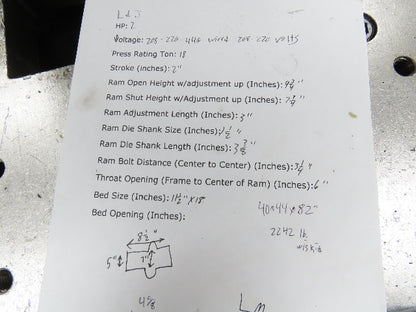 L & J
HP: 2
Voltage: 208-220-440 wired 208-220 volts
Press Rating Ton: 18
Stroke (inches): 2"
Ram Open Height w/adjustment up (Inches): 9 3/4"
Ram Shut Height w/Adjustment up (Inches): 7 3/4"
Ram Adjustment Length (Inches): 3"
Ram Die Shank Size (Inches): 1 1/2"
Ram Die Shank Length (Inches): 3 3/8"
Ram Bolt Distance (Center to Center) (Inches): 3 1/4"
Throat Opening (Frame to Center of Ram) (Inches): 6"
Bed Size (Inches): 11 1/2" x 18
40x44x82"
Bed Opening (Inches):
2242 lb.
8 1/2"
5"
7"
4 5/8
LM